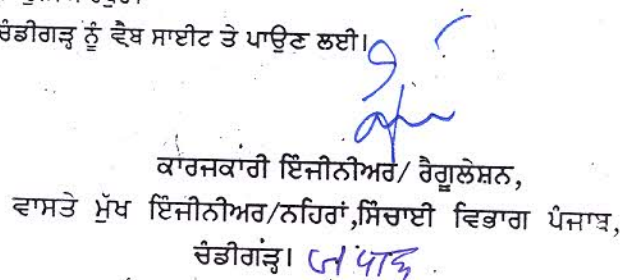 ਚੰਡੀਗੜ੍ਹ ਨੂੰ ਵੈਬ ਸਾਈਟ ਤੇ ਪਾਉਣ ਲਈ।
ਕਾਰਜਕਾਰੀ ਇੰਜੀਨੀਅਰ/ ਰੈਗੂਲੇਸ਼ਨ,
ਵਾਸਤੇ ਮੁੱਖ ਇੰਜੀਨੀਅਰ/ਨਹਿਰਾਂ,ਸਿੰਚਾਈ ਵਿਭਾਗ ਪੰਜਾਬ,
ਚੰਡੀਗੜ੍ਹ।